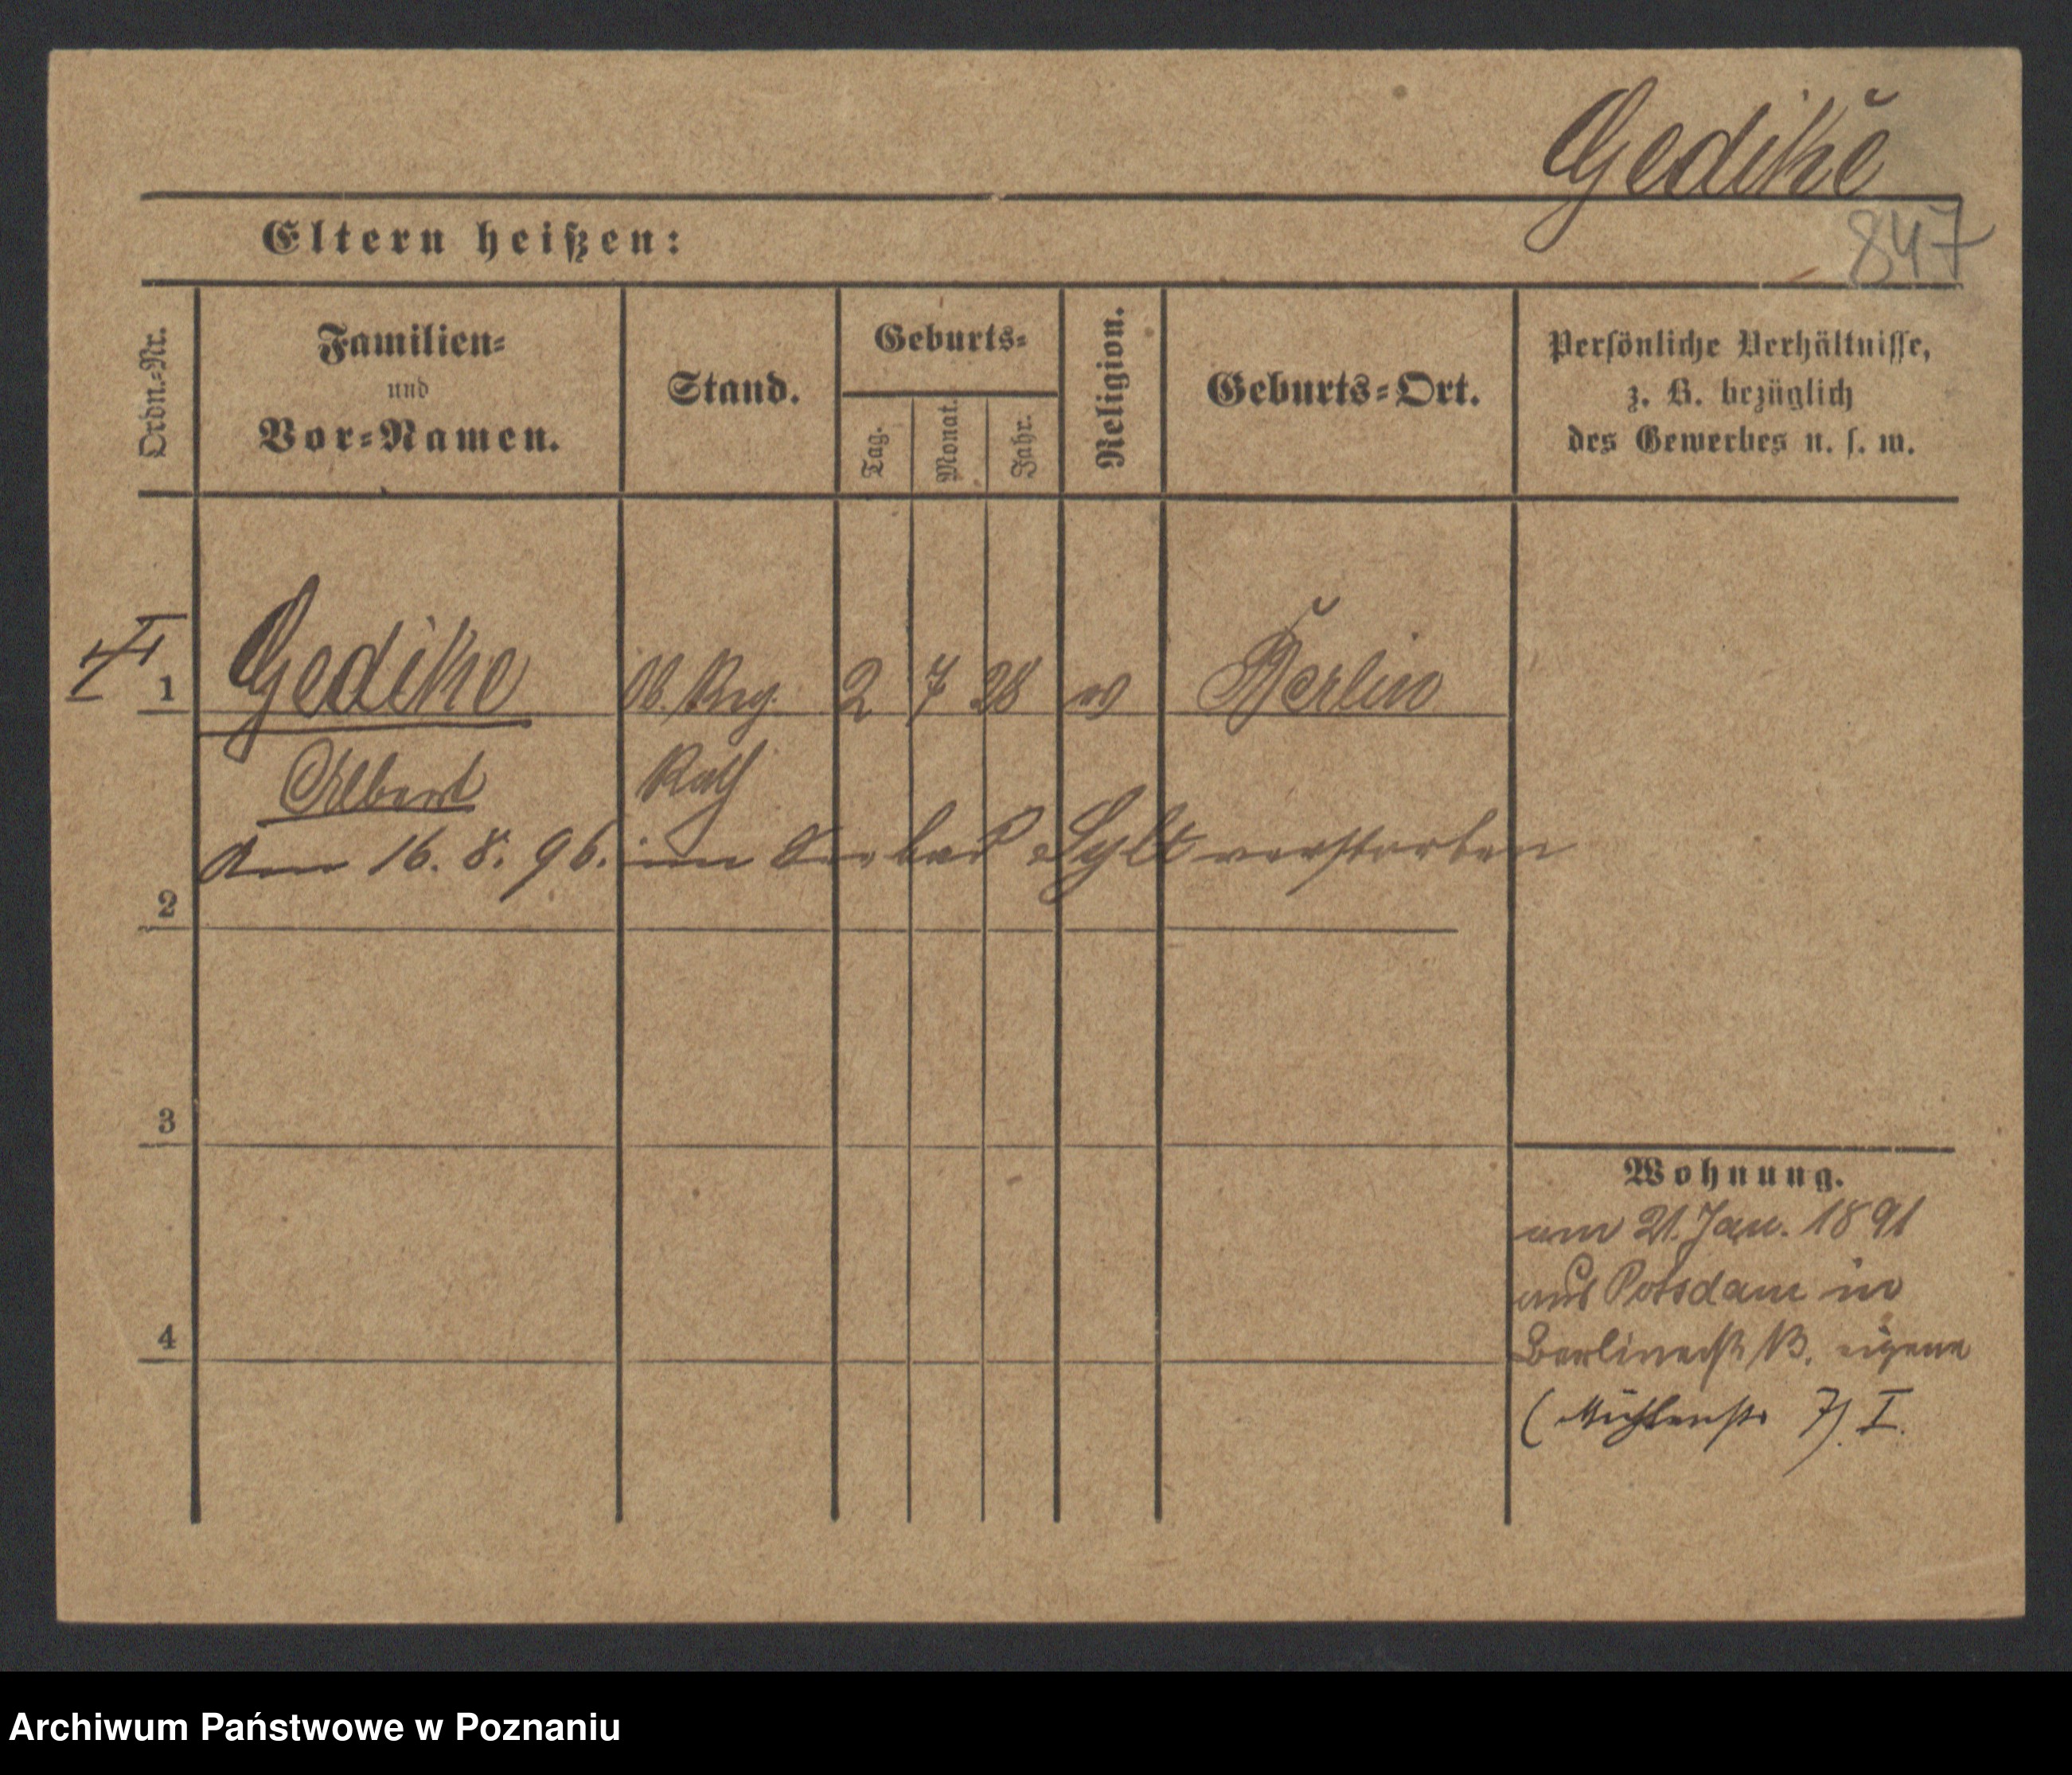 Gedike
847
Eltern heißen:
Ordn.-Nr.
Familien-
und
Vor-Namen.
Stand.
Geburts-
Tag.
Monat.
Jahr.
Religion.
Geburts-Ort.
Persönliche Verhältnisse,
z. B. bezüglich
des Gewerbes u. s. w.
1 Gedike Ob. Reg. 2 7 28 Berlin
Albert Rath
am 16. 8. 96. im Seebad Sylt verstorben
2
3
4
Wohnung.
am 21. Jan. 1891
aus Potsdam in
Berlinerstr 13. eigene
(Mühlenstr 7) I.
Archiwum Państwowe w Poznaniu